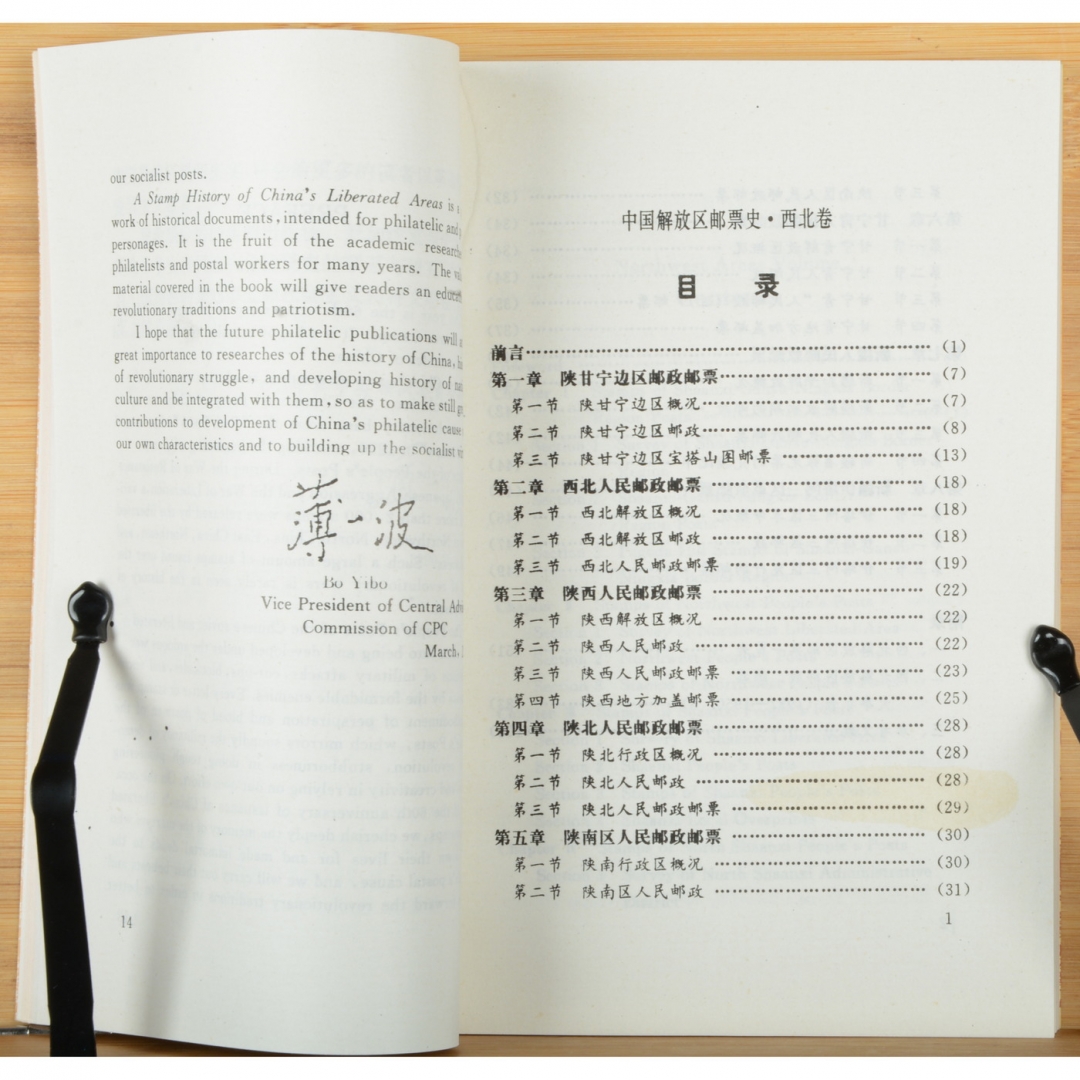 our socialist posts.
A Stamp History of China's Liberated Areas is
work of historical documents, intended for philatelic and
personages. It is the fruit of the academic
philatelists and postal workers for many years. The
material covered in the book will give readers an
revolutionary traditions and patriotism.
I hope that the future philatelic publications will
great importance to researches of the history of China,
of revolutionary struggle, and developing history of
culture and be integrated with them, so as to make still
contributions to development of China's philatelic
our own characteristics and to building up the socialist
薄一波
Bo Yibo
Vice President of Central
Commission of CPC
March,
14
中国解放区邮票史·西北卷
目 录
前言……(1)
第一章 陕甘宁边区邮政邮票……(7)
第一节 陕甘宁边区概况……(7)
第二节 陕甘宁边区邮政……(8)
第三节 陕甘宁边区宝塔山图邮票……(13)
第二章 西北人民邮政邮票……(18)
第一节 西北解放区概况……(18)
第二节 西北解放区邮政……(18)
第三节 西北人民邮政邮票……(19)
第三章 陕西人民邮政邮票……(22)
第一节 陕西解放区概况……(22)
第二节 陕西人民邮政……(22)
第三节 陕西人民邮政邮票……(23)
第四节 陕西地方加盖邮票……(25)
第四章 陕北人民邮政邮票……(28)
第一节 陕北行政区概况……(28)
第二节 陕北人民邮政……(28)
第三节 陕北人民邮政邮票……(29)
第五章 陕南区人民邮政邮票……(30)
第一节 陕南行政区概况……(30)
第二节 陕南区人民邮政……(31)
1